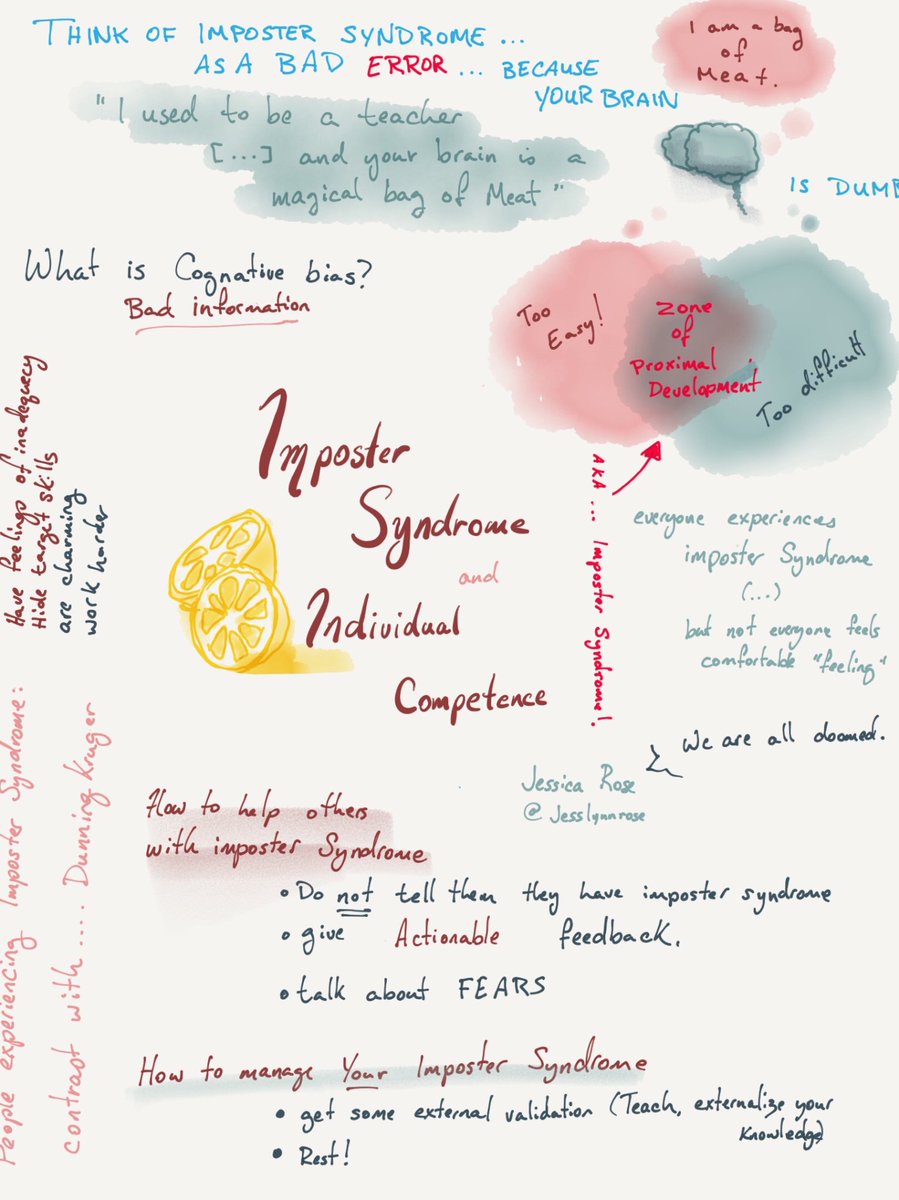 THINK OF IMPOSTER SYNDROME ...
AS A BAD ERROR ... BECAUSE
YOUR BRAIN
I am a bag
of
Meat.
IS DUMB
"I used to be a teacher
[...] and your brain is a
magical bag of Meat"
What is Cognative bias?
Bad information
Too
Easy!
Zone
of
Proximal
Development
Too difficult
AKA ... Imposter Syndrome!
everyone experiences
imposter Syndrome
(...)
but not everyone feels
comfortable "feeling"
We are all doomed.
Jessica Rose
@Jesslynnrose
Imposter
Syndrome
and
Individual
Competence
People experiencing Imposter Syndrome:
Have feelings of inadequecy
Hide target skills
are charming
work harder
contrast with .... Dunning Kruger
How to help others
with imposter Syndrome
• Do not tell them they have imposter syndrome
• give Actionable feedback.
• talk about FEARS
How to manage Your Imposter Syndrome
• get some external validation (Teach, externalize your
knowledge)
• Rest!